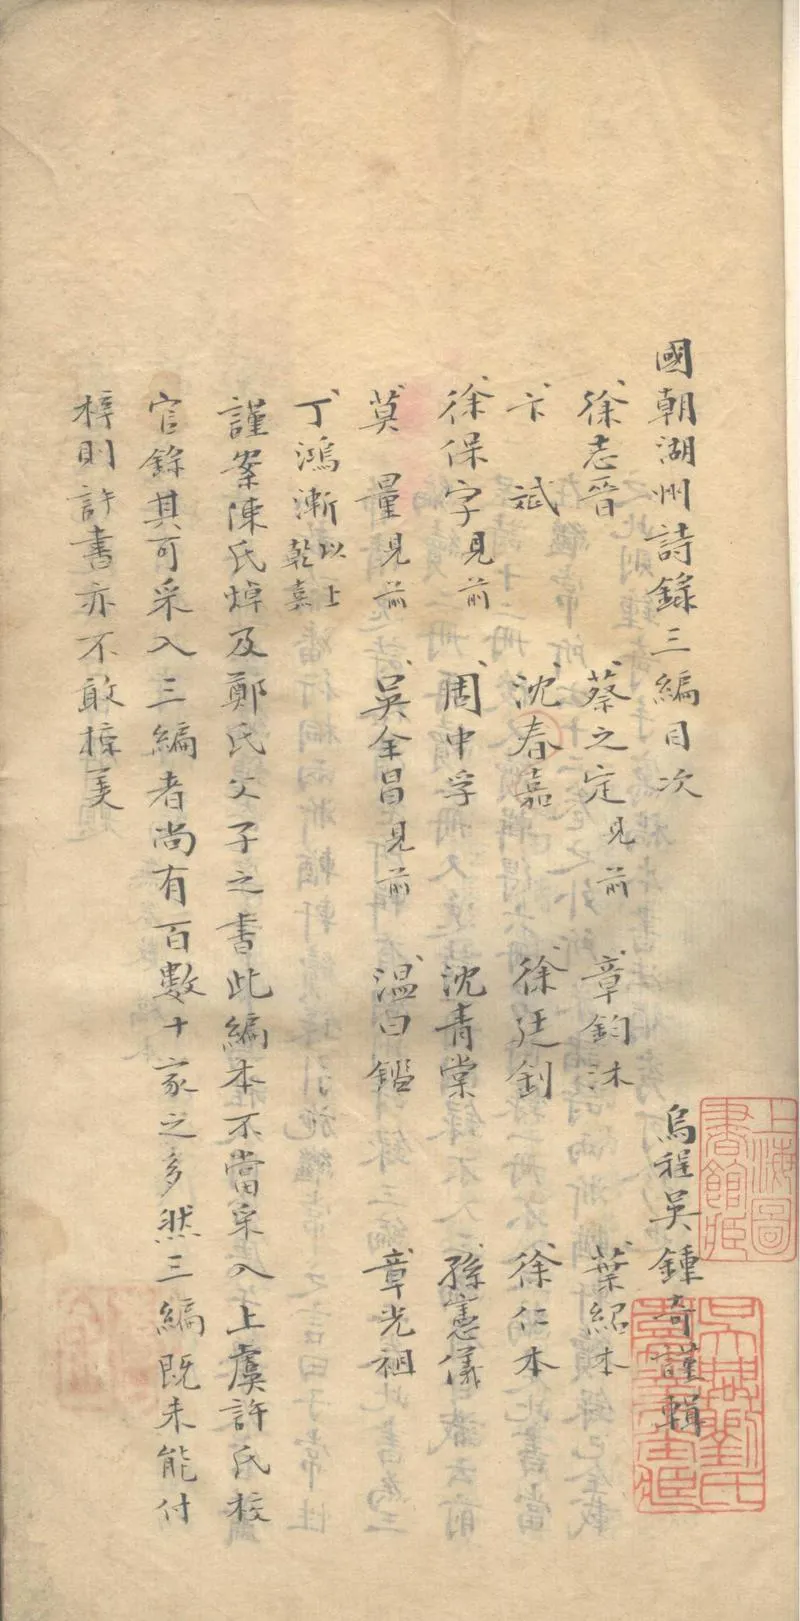 國朝湖州詩錄三編目次
烏程吳鍾奇謹輯
徐志晉 蔡之定見前 章鈞沐 葉紹本
卞斌 沈春嘉 徐廷釗 徐仁本
徐保字見前 周中孚 沈青棠 孫憲儀
莫量見前 吳全昌見前 溫曰鑑 章光祖
丁鴻漸以上乾嘉
謹案陳氏焯及鄭氏父子之書此編本不當采入上虞許氏校
官錄其可采入三編者尚有百數十家之多然三編既未能付
梓則許書亦不敢掠美
上海圖書館臧
吳興劉氏嘉業堂臧